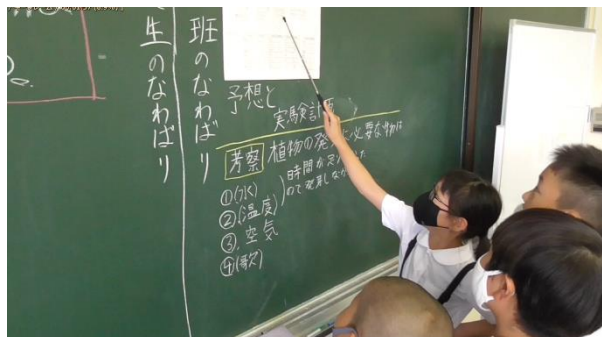 生のなわばり
班のなわばり
予想と
実験計画
考察 植物の発芽に必要な物は
①(水)
②(温度)
③.空気
④(歌)
時間が足りなかった
ので発芽しなか